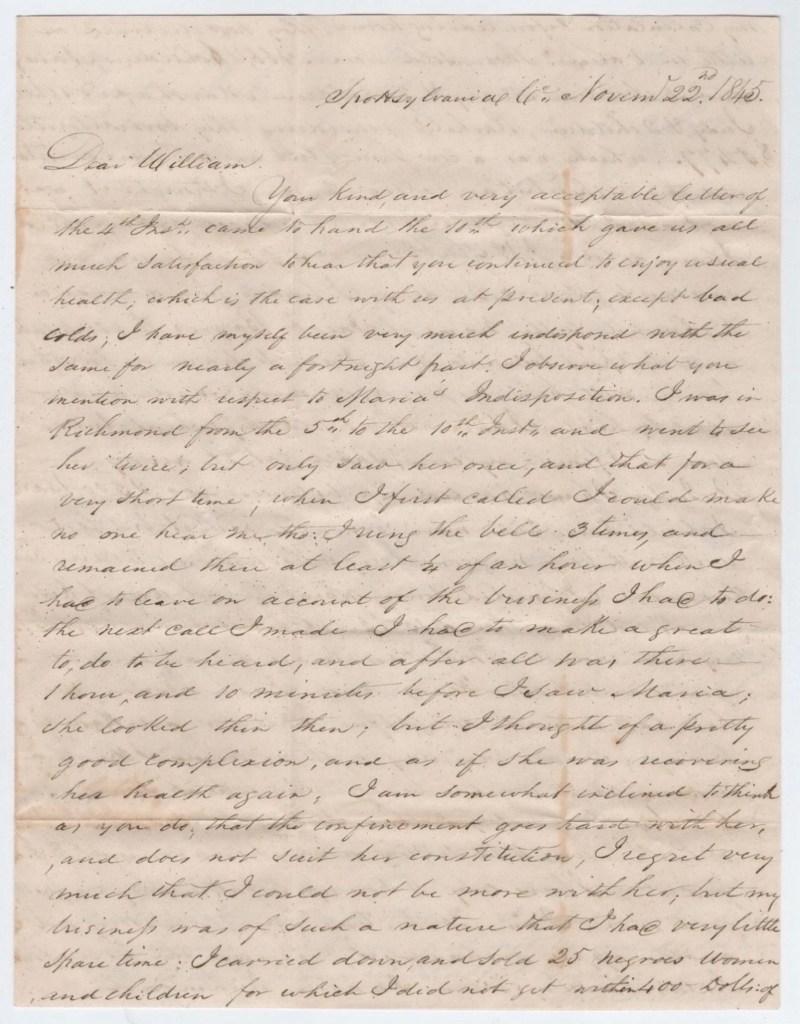 Spottsylvania Co. Novemr 22nd 1845.
Dear William.
Your kind, and very acceptable letter of
the 4th Inst., came to hand the 10th which gave us all
much satisfaction to hear that you continued to enjoy usual
health, which is the case with us at present, except bad
colds, I have myself been very much indisposd with the
same for nearly a fortnight past. I observe what you
mention with respect to Maria's Indisposition. I was in
Richmond from the 5th to the 10th Inst, and went to see
her twice, but only saw her once, and that for a
very short time, when I first called I could make
no one hear me, tho: I rung the bell 3 times, and
remained there at least ¼ of an hour when I
had to leave on account of the business I had to do:
the next call I made I had to make a great
to, do to be heard, and after all was there
1 hour, and 10 minutes before I saw Maria;
she looked thin then; but I thought of a pretty
good complexion, and as if she was recovering
her health again, I am somewhat inclined to think
as you do, that the confinement goes hard with her,
, and does not suit her constitution, I regret very
much that I could not be more with her, but my
business was of such a nature that I had very little
spare time: I carried down, and sold 25 negroes women
, and children for which I did not get within 400 Dolls: of